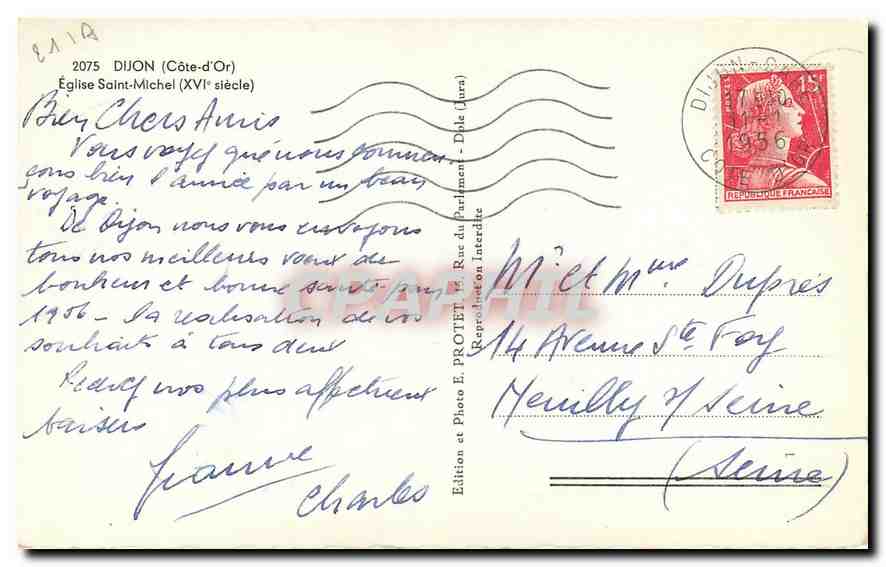 21 IA
2075 DIJON (Côte-d'Or)
Église Saint-Michel (XVIe siècle)
Bien Chers Amis
Vous voyez que nous commen
çons bien l'année par un beau
voyage.
De Dijon nous vous envoyons
tous nos meilleurs vœux de
bonheur et bonne santé pour
1956 - la réalisation de vos
souhaits à tous deux
Recevez nos plus affectueux
baisers
Jeanne
Charles
Edition et Photo E. PROTET, Rue du Parlement - Dole (Jura)
Reproduction Interdite
CPAPHIL
DIJON
1956
POSTES
15F
REPUBLIQUE FRANÇAISE
Mr et Mme Duprés
14 Avenue Ste Foy
Neuilly s/ Seine
(Seine)